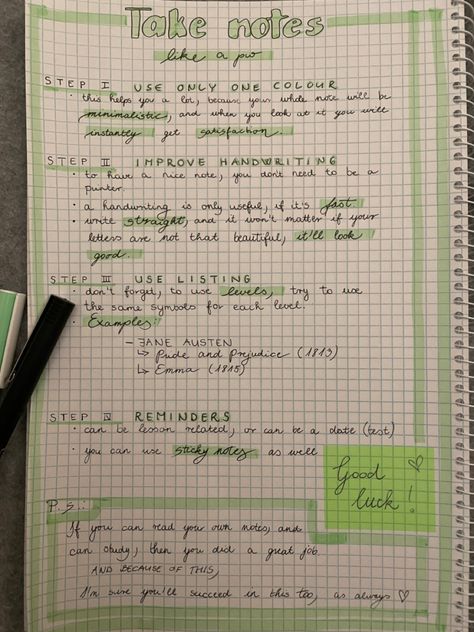 Take notes
like a pro
STEP I USE ONLY ONE COLOUR
· this helps you a lot, because your whole note will be
minimalistic, and when you look at it you will
instantly get satisfaction.
STEP II IMPROVE HANDWRITING
· to have a nice note, you don't need to be a
printer.
· a handwriting is only useful, if it's fast
· write straight, and it won't matter if your
letters are not that beautiful, it'll look
good.
STEP III USE LISTING
· don't forget, to use levels, try to use
the same symbols for each level.
· Examples:
- JANE AUSTEN
↳ Pride and Prejudice (1813)
↳ Emma (1815)
STEP IV REMINDERS
· can be lesson related, or can be a date (test)
· you can use sticky notes as well
Good ♡
luck!
P.S.:
If you can read you own notes, and
can study, then you did a great job.
AND BECAUSE OF THIS,
I'm sure you'll succeed in this too, as always ♡